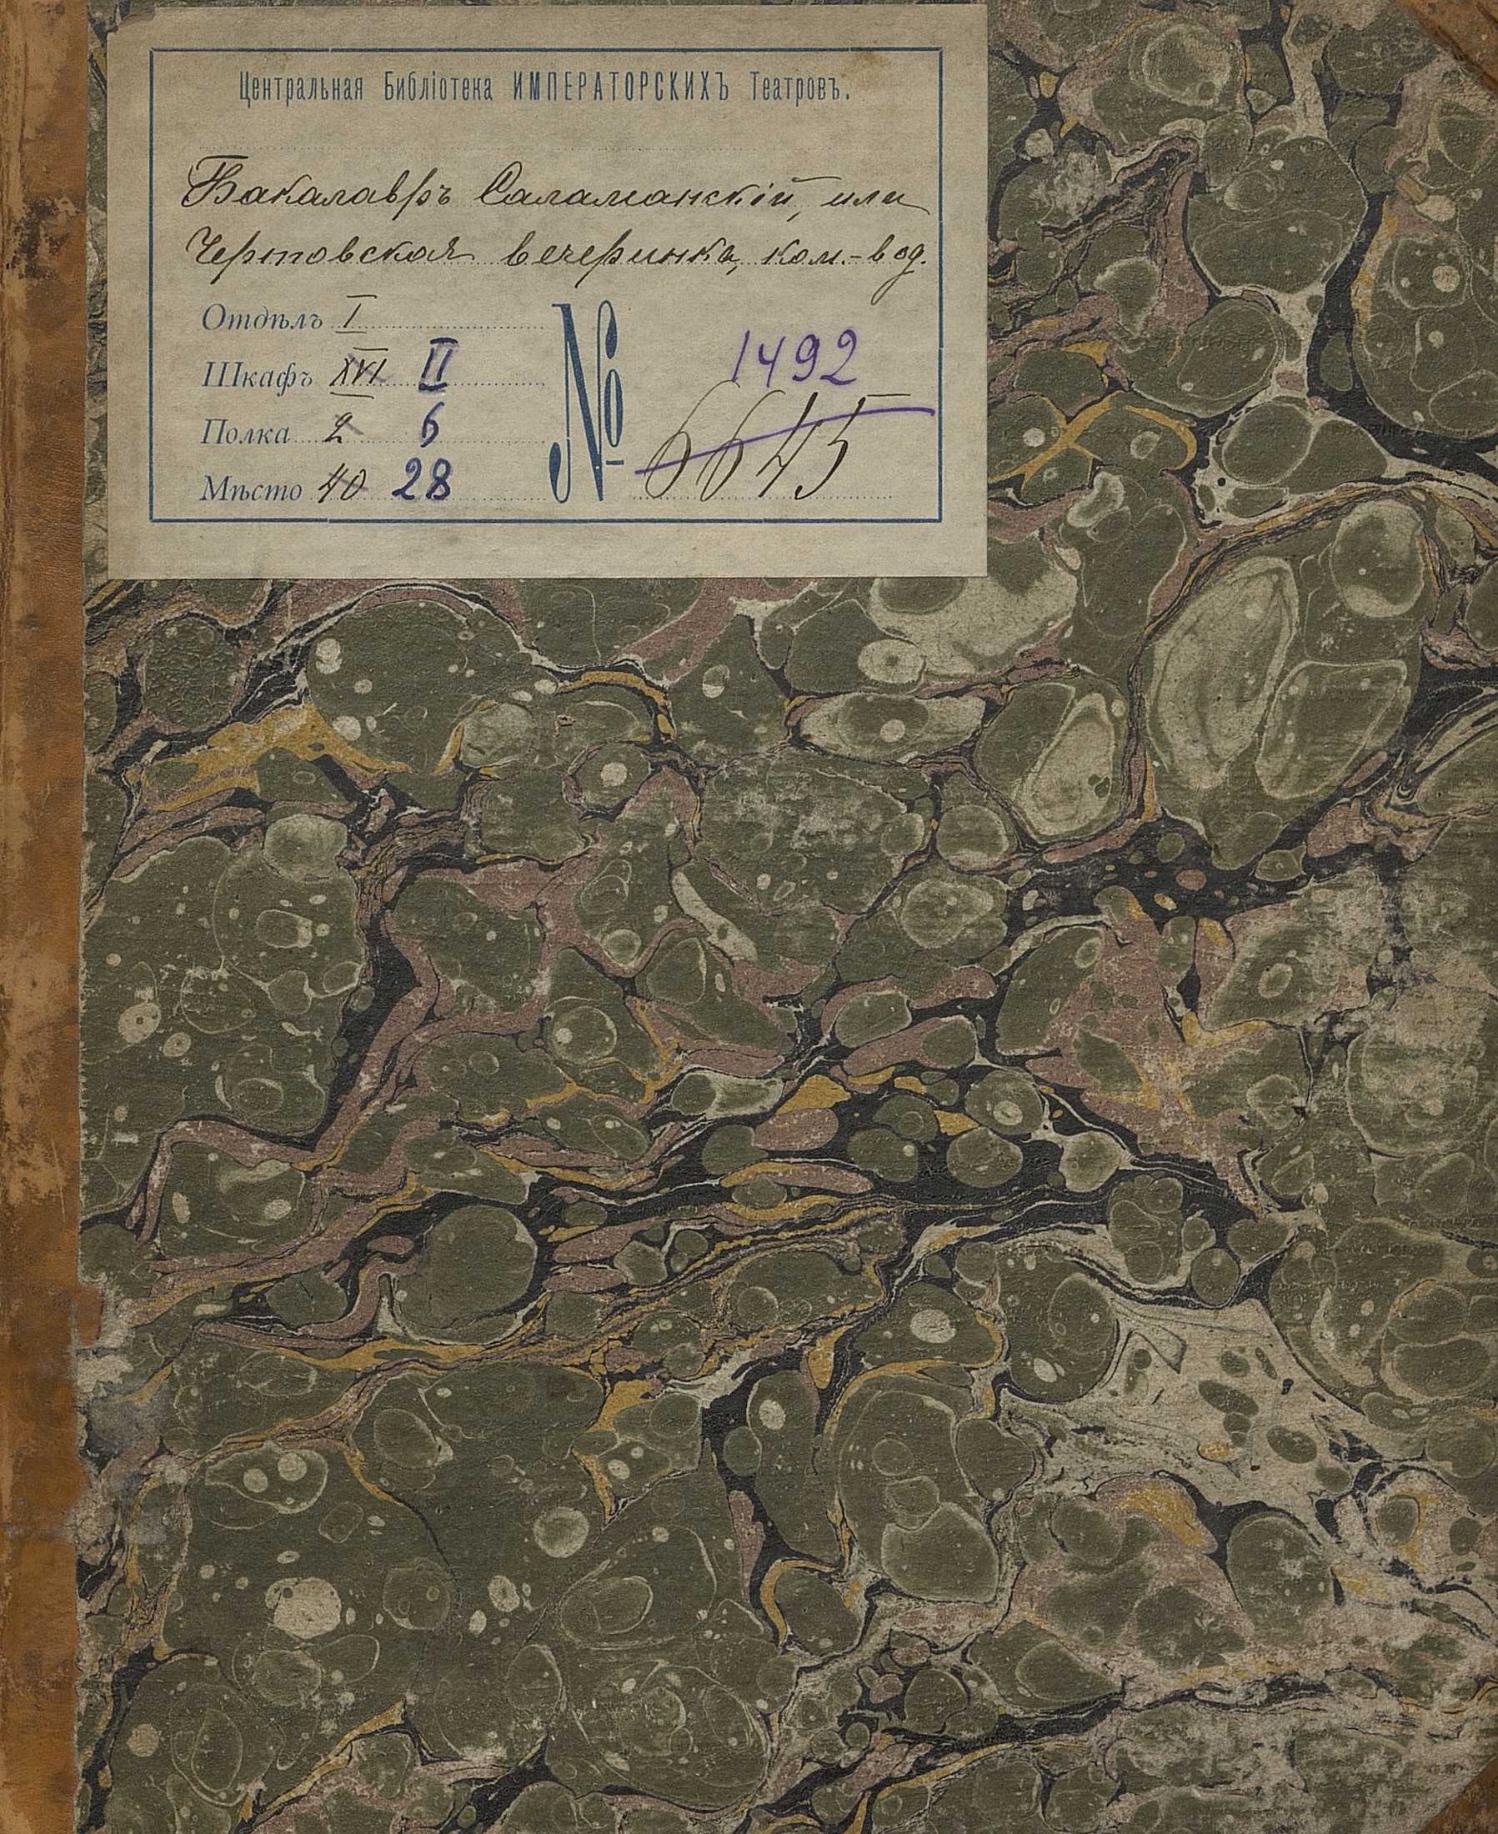 Центральная Библіотека ИМПЕРАТОРСКИХЪ Театровъ.
Бакалавръ Саламанскій, или
Чертовская вечеринка, ком.-вод.
Отдѣлъ I
Шкафъ XVI II
Полка 2 6
Мѣсто 40 28
№ 1492
6645